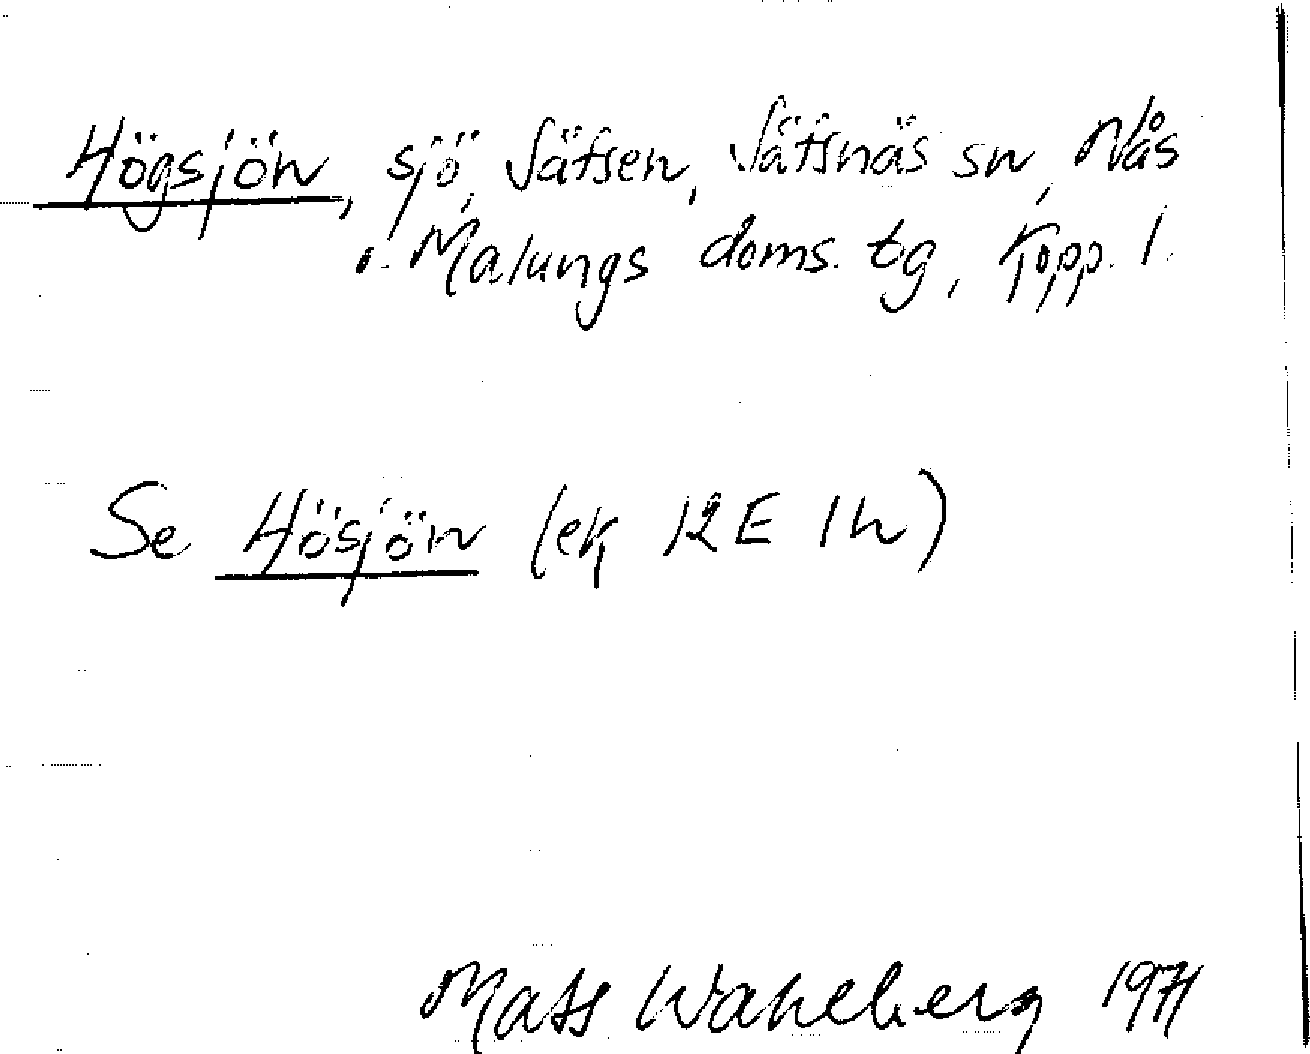 Högsjön, sjö, Säfsen, Säfsnäs sn, Nås
o. Malungs doms. tg, Kopp. l.
Se Hösjön (ek 12E 1h)
Mats Wahlberg 1971